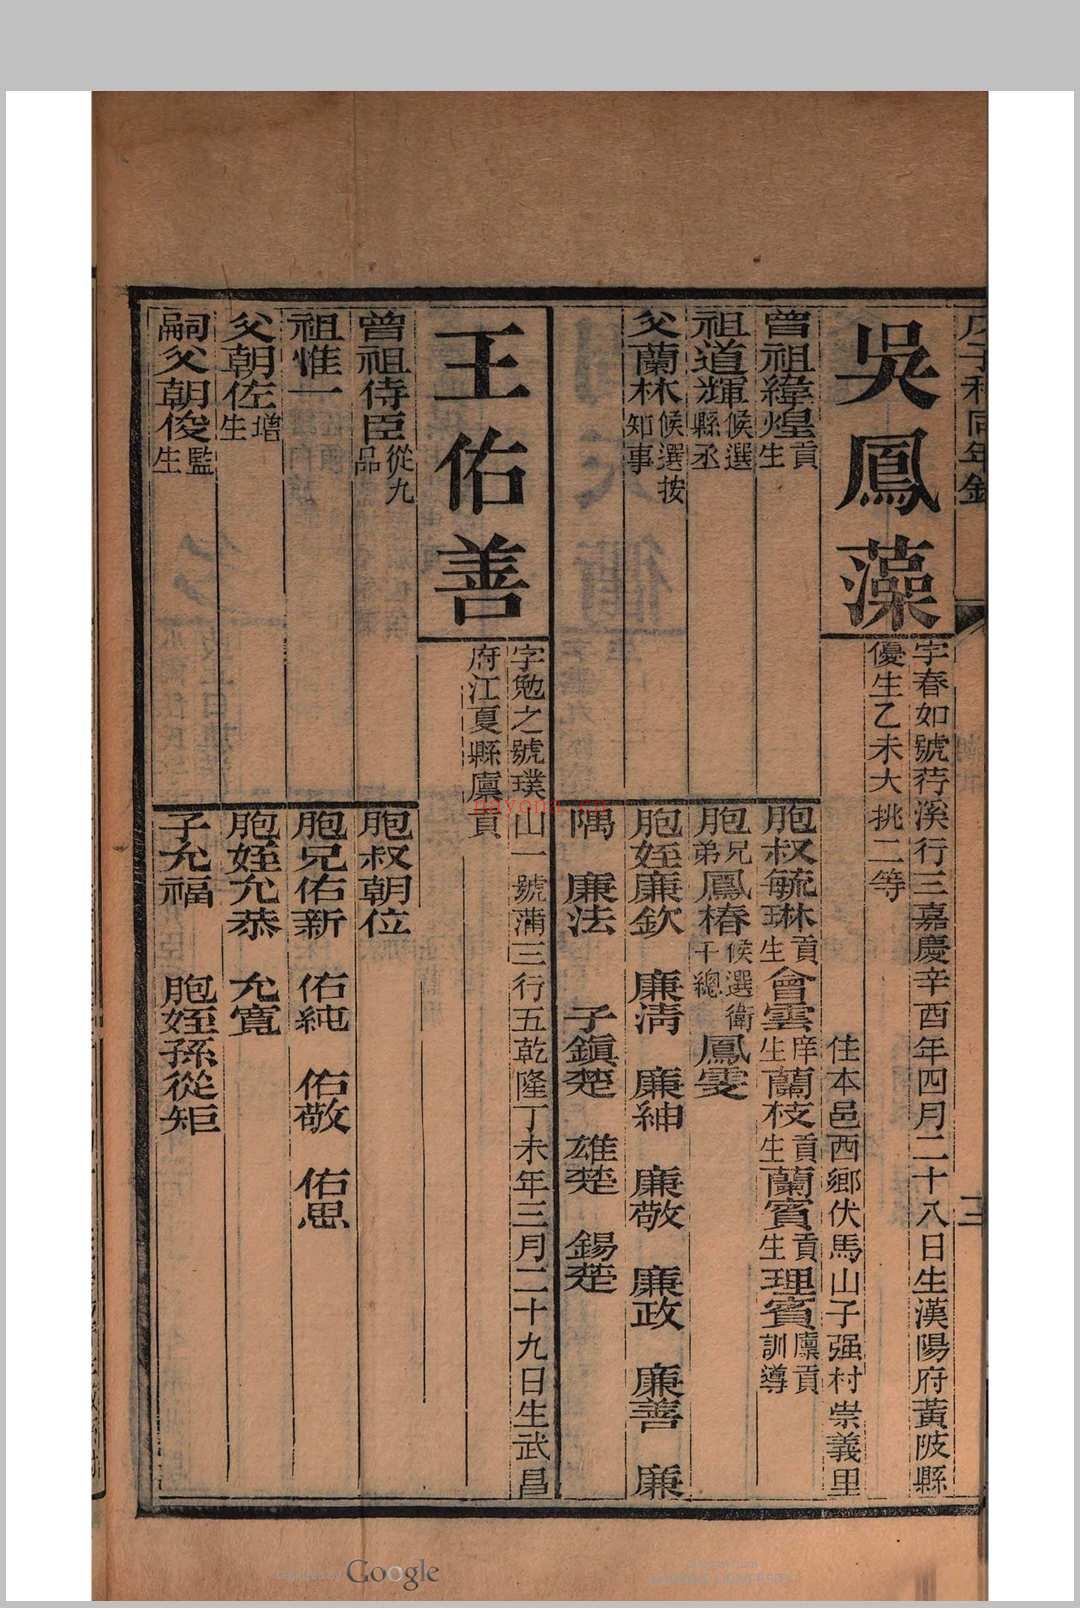 戊子科同年錄
三
吳鳳藻
字春如號荇溪行三嘉慶辛酉年四月二十八日生漢陽府黃陂縣
優生乙未大挑二等
住本邑西鄉伏馬山子强村崇義里
曾祖緯煌貢生
祖道輝候選縣丞
父蘭林候選按知事
胞叔毓琳貢生會雲庠生蘭枝貢生蘭賓貢生理賓廩貢訓導
胞兄弟鳳椿候選衛千總鳳雯
胞姪廉欽 廉清 廉紳 廉敬 廉政 廉善 廉
隅 廉法 子鎮楚 雄楚 錫楚
王佑善
字勉之號璞山一號蒲三行五乾隆丁未年三月二十九日生武昌
府江夏縣廩貢
曾祖侍臣從九品
祖惟一
父朝佐增生
嗣父朝俊監生
胞叔朝位
胞兄佑新 佑純 佑敬 佑思
胞姪允恭 允寬
子允福 胞姪孫從矩
Google